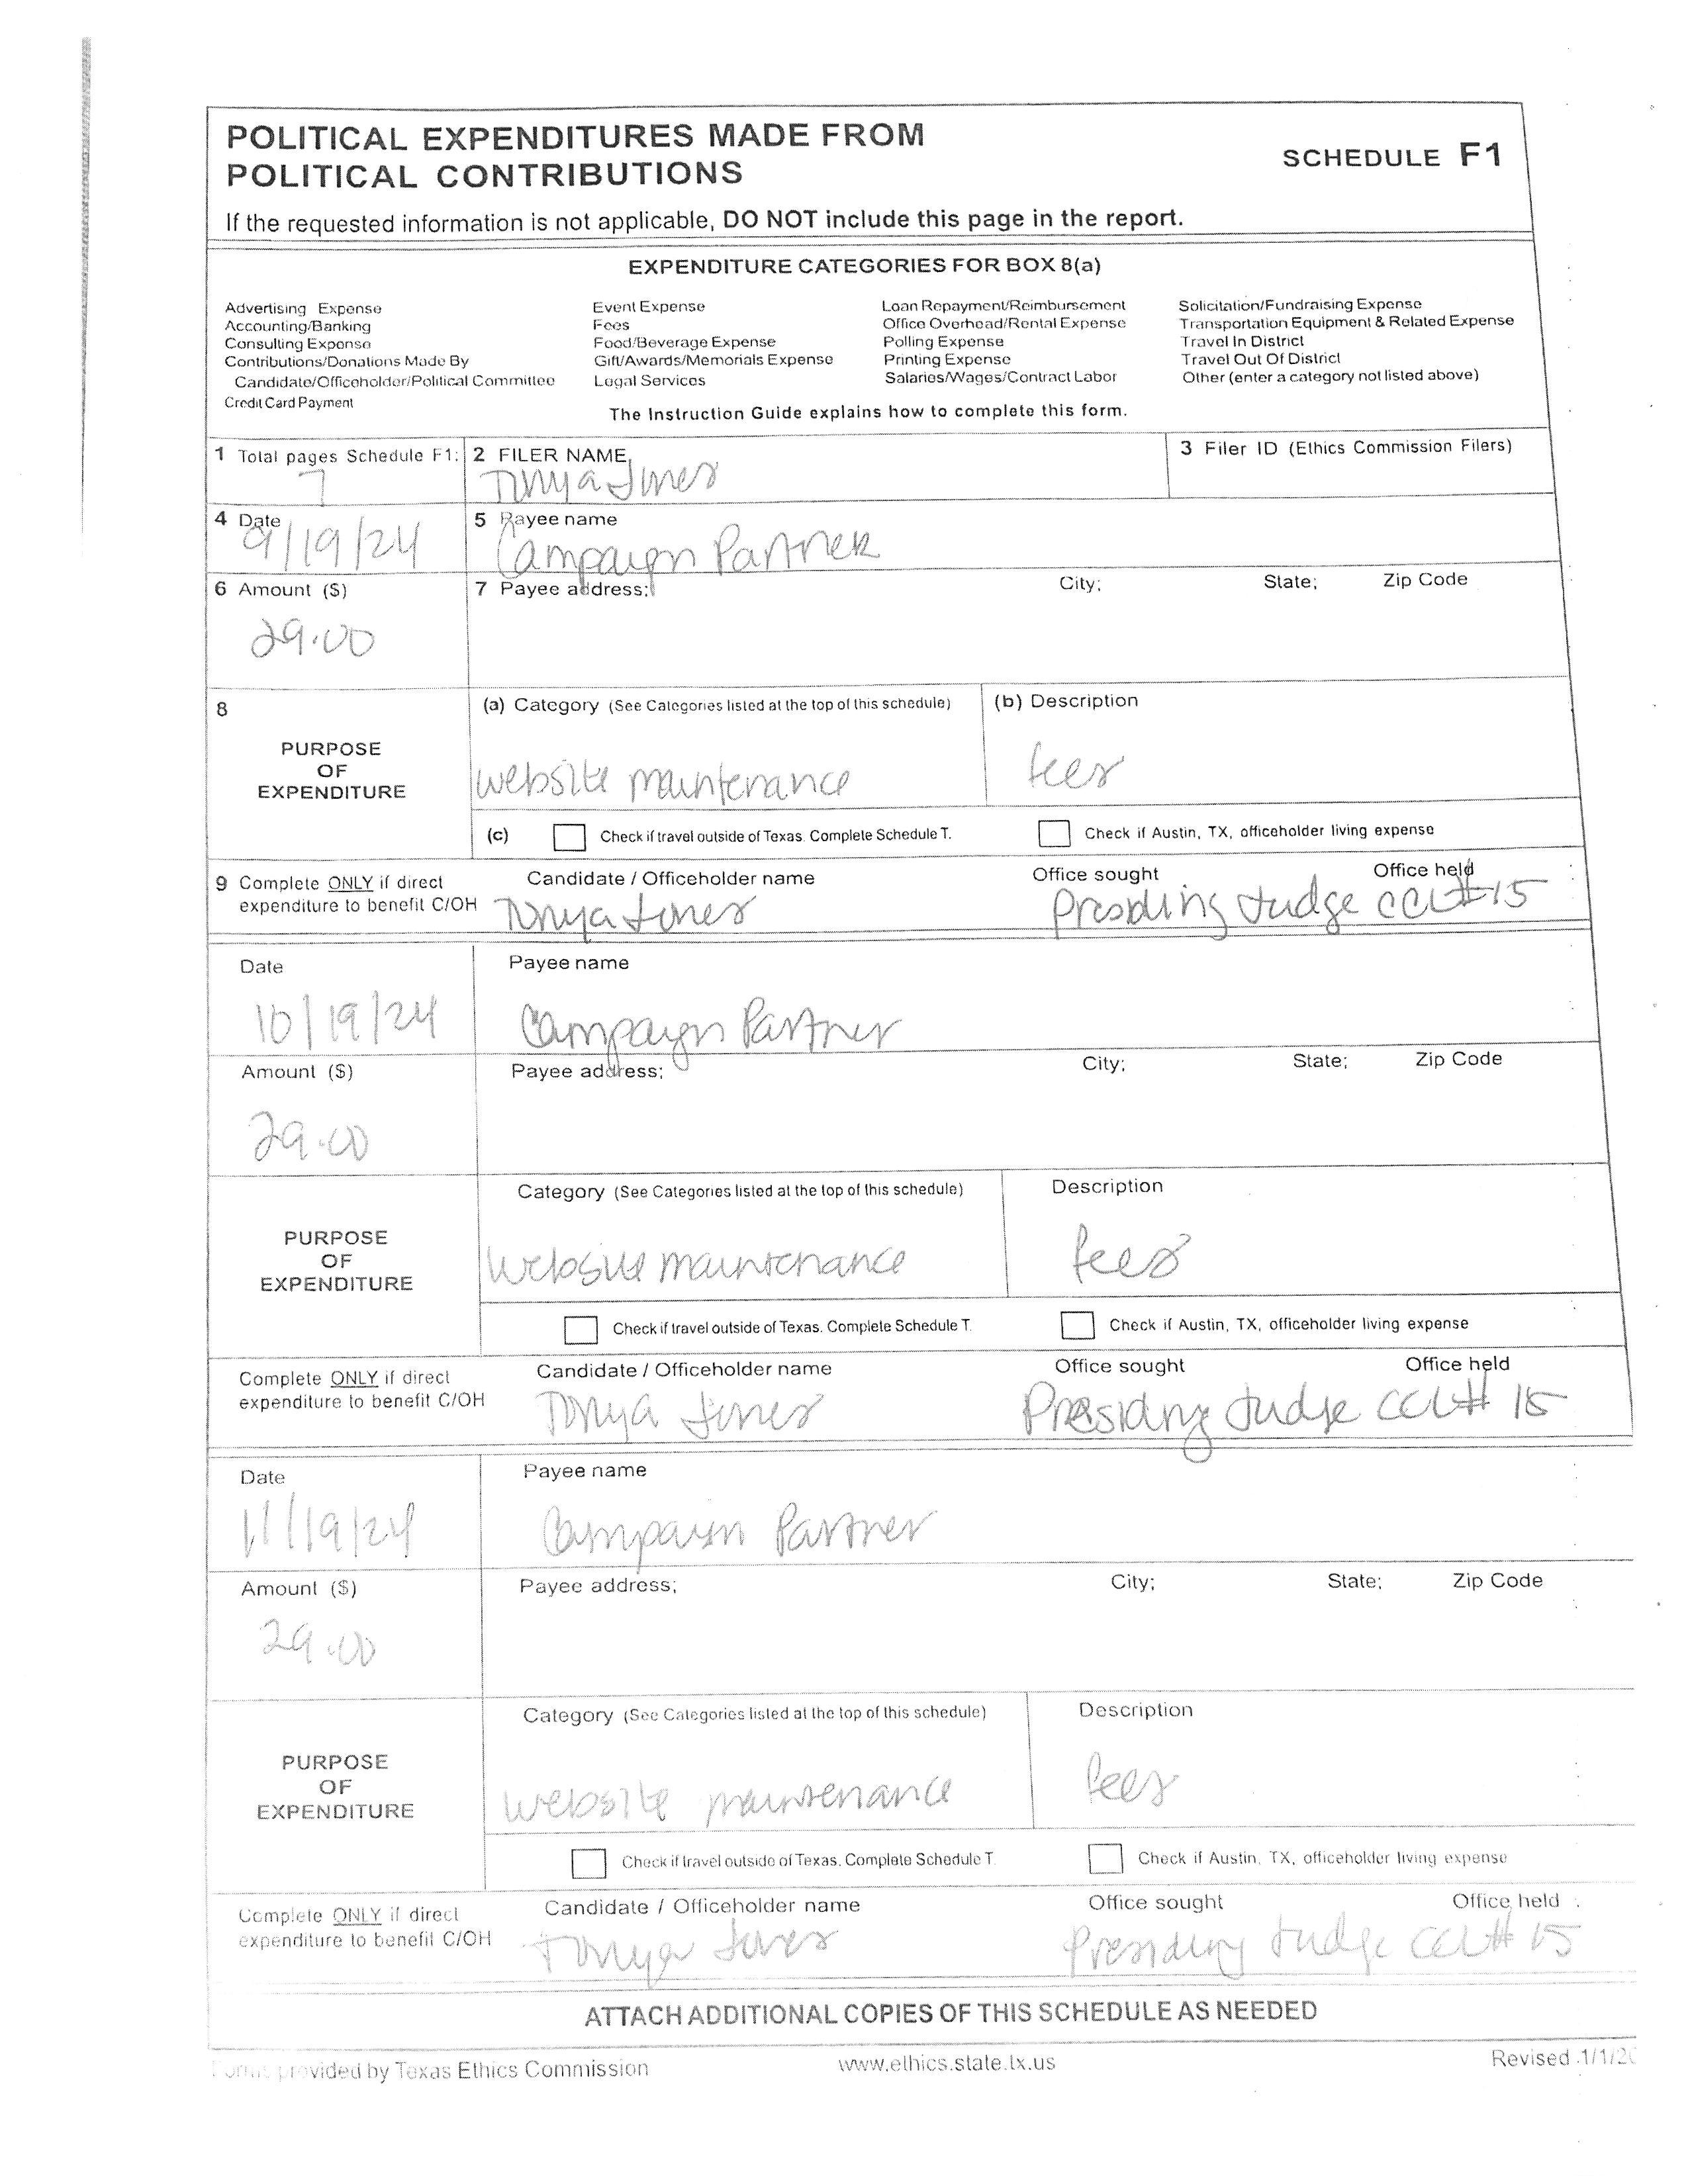 POLITICAL EXPENDITURES MADE FROM
POLITICAL CONTRIBUTIONS
SCHEDULE F1
If the requested information is not applicable, DO NOT include this page in the report.
EXPENDITURE CATEGORIES FOR BOX 8(a)
Advertising Expense Event Expense Loan Repayment/Reimbursement Solicitation/Fundraising Expense
Accounting/Banking Fees Office Overhead/Rental Expense Transportation Equipment & Related Expense
Consulting Expense Food/Beverage Expense Polling Expense Travel In District
Contributions/Donations Made By Gift/Awards/Memorials Expense Printing Expense Travel Out Of District
Candidate/Officeholder/Political Committee Legal Services Salaries/Wages/Contract Labor Other (enter a category not listed above)
Credit Card Payment
The Instruction Guide explains how to complete this form.
1 Total pages Schedule F1: 2 FILER NAME 3 Filer ID (Ethics Commission Filers)
7 Tonya Jones
4 Date 5 Payee name
9/19/24 Campaign Partner
6 Amount ($) 7 Payee address; City; State; Zip Code
29.00
8 (a) Category (See Categories listed at the top of this schedule) (b) Description
PURPOSE
OF
EXPENDITURE
website maintenance fees
(c) Check if travel outside of Texas. Complete Schedule T. Check if Austin, TX, officeholder living expense
9 Complete ONLY if direct
expenditure to benefit C/OH
Candidate / Officeholder name Office sought Office held
Tonya Jones Presiding Judge CCL#15
Date Payee name
10/19/24 Campaign Partner
Amount ($) Payee address; City; State; Zip Code
29.00
Category (See Categories listed at the top of this schedule) Description
PURPOSE
OF
EXPENDITURE
website maintenance fees
Check if travel outside of Texas. Complete Schedule T. Check if Austin, TX, officeholder living expense
Complete ONLY if direct
expenditure to benefit C/OH
Candidate / Officeholder name Office sought Office held
Tonya Jones Presiding Judge CCL# 15
Date Payee name
11/19/24 Campaign Partner
Amount ($) Payee address; City; State; Zip Code
29.00
Category (See Categories listed at the top of this schedule) Description
PURPOSE
OF
EXPENDITURE
website maintenance fees
Check if travel outside of Texas. Complete Schedule T. Check if Austin, TX, officeholder living expense
Complete ONLY if direct
expenditure to benefit C/OH
Candidate / Officeholder name Office sought Office held
Tonya Jones Presiding Judge CCL# 15
ATTACH ADDITIONAL COPIES OF THIS SCHEDULE AS NEEDED
Forms provided by Texas Ethics Commission www.ethics.state.tx.us Revised 1/1/20